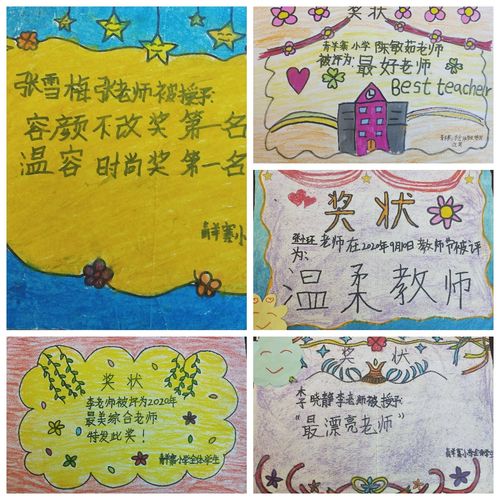 张雪梅张老师被授予:
容颜不改奖 第一名
温容时尚奖 第一名
奖状
陈敏茹老师
被评为:最好老师
Best teacher
奖状
老师在2020年9月10日教师节被评
为:
温柔教师
奖状
李老师被评为2020年
最美综合老师
特发此奖!
小学全体学生
奖状
李晓静李老师被授予:
"最漂亮老师"